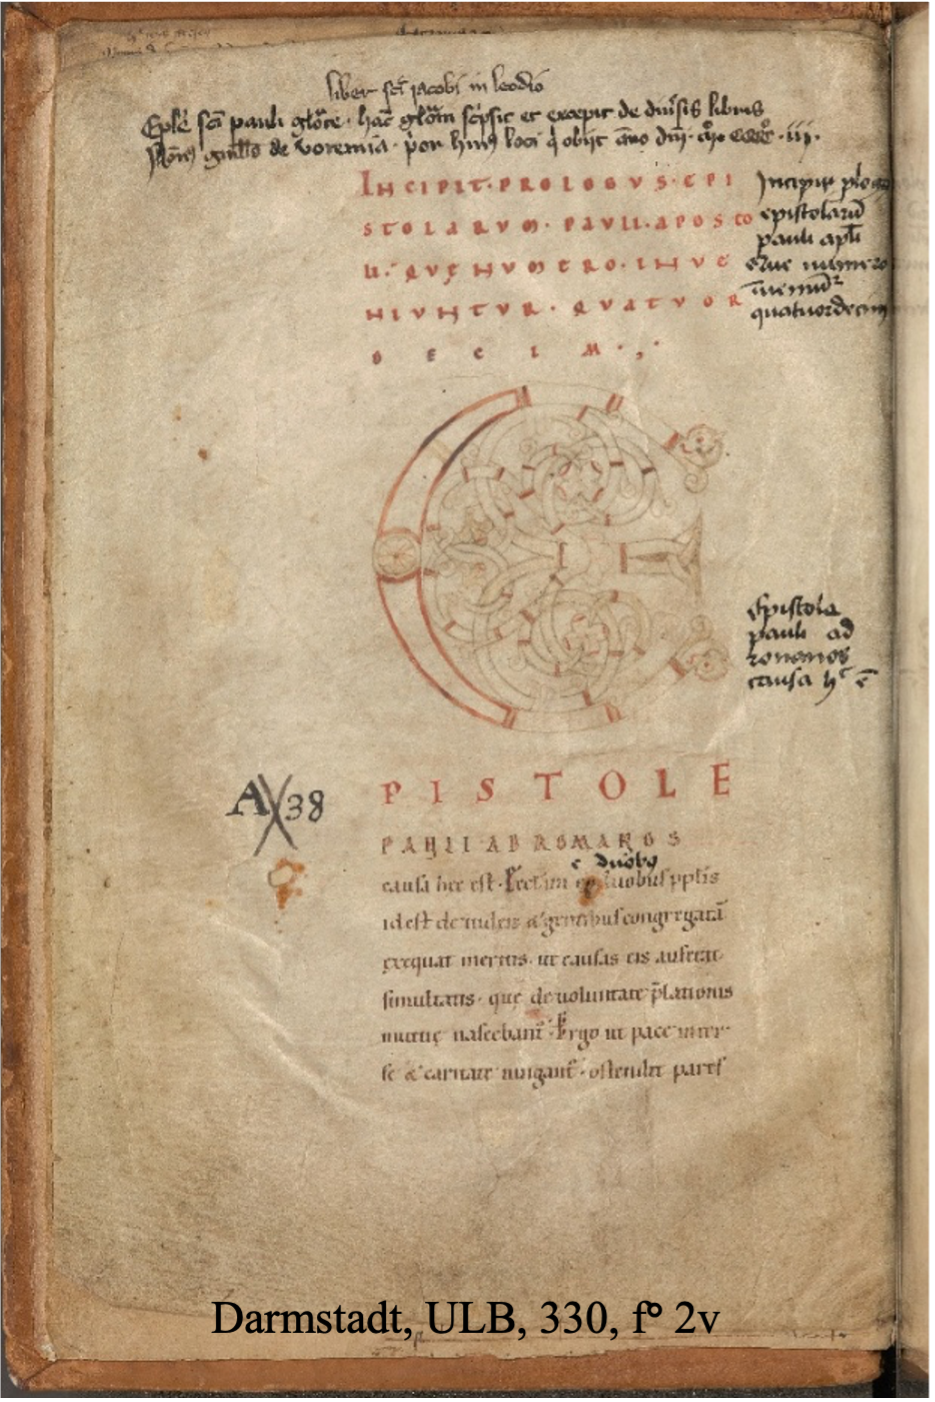 liber sci jacobi in leodio
Eple sci pauli glose · hac glosam scpsit et excepit de diuersis libris
de voremia · por huius loci q obijt año dni · mo cccco · iij ·
INCIPIT · PROLOGVS · EPI
STOLARVM · PAVLI · APOSTO
LI · QVĘ NVMERO · INVE
NIVNTVR · QVATVOR
DECIM · , ·
Incipit plog
epistolarū
pauli apli
que numero
quatuordecim
Epistole
pauli ad
romanos
causa hc ē
A 38
E
PISTOLE
PAULI AD ROMANOS
e duobus
causa hec est · duobus pplis
id est de iudeis & gentibus congregatā
exequat meritis · ut causas eis auferat
simultatis · quę de uoluntate p̄lationis
mutuę nascebant̄ · Ergo ut pace inter
se & caritate iungant̄ · ostendit pares
Darmstadt, ULB, 330, fº 2v